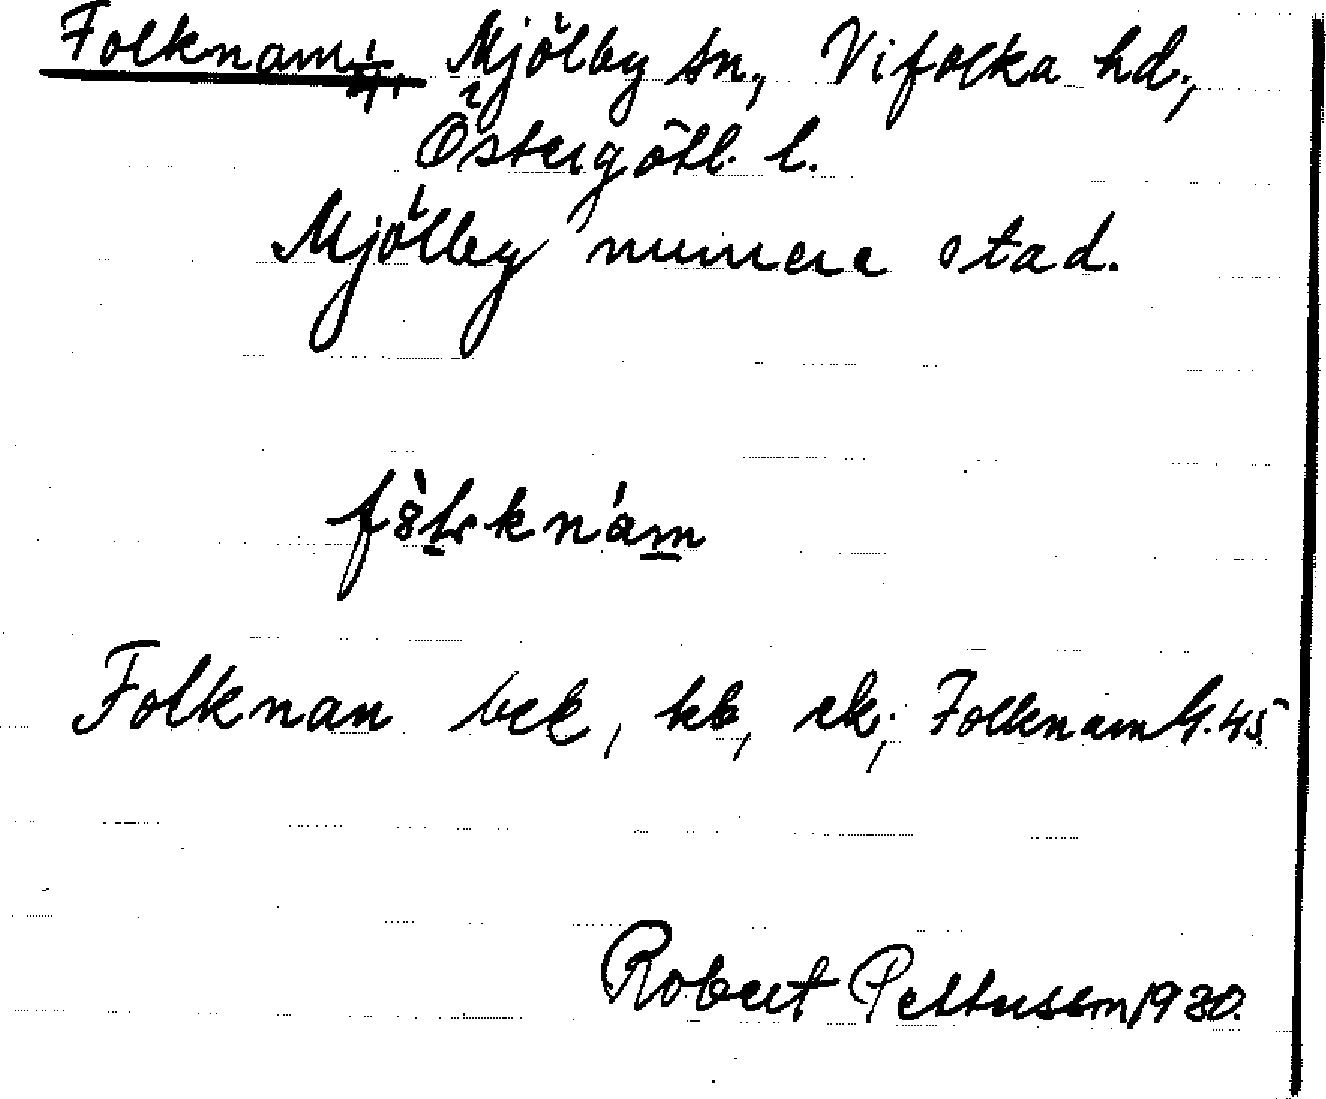 Folknam 1/4. Mjölby sn, Vifolka hd.,
Östergötl. l.
Mjölby numera stad.
Folknan bek, kb, ek; Folknam G. 45
Robert Pettersson 1930.